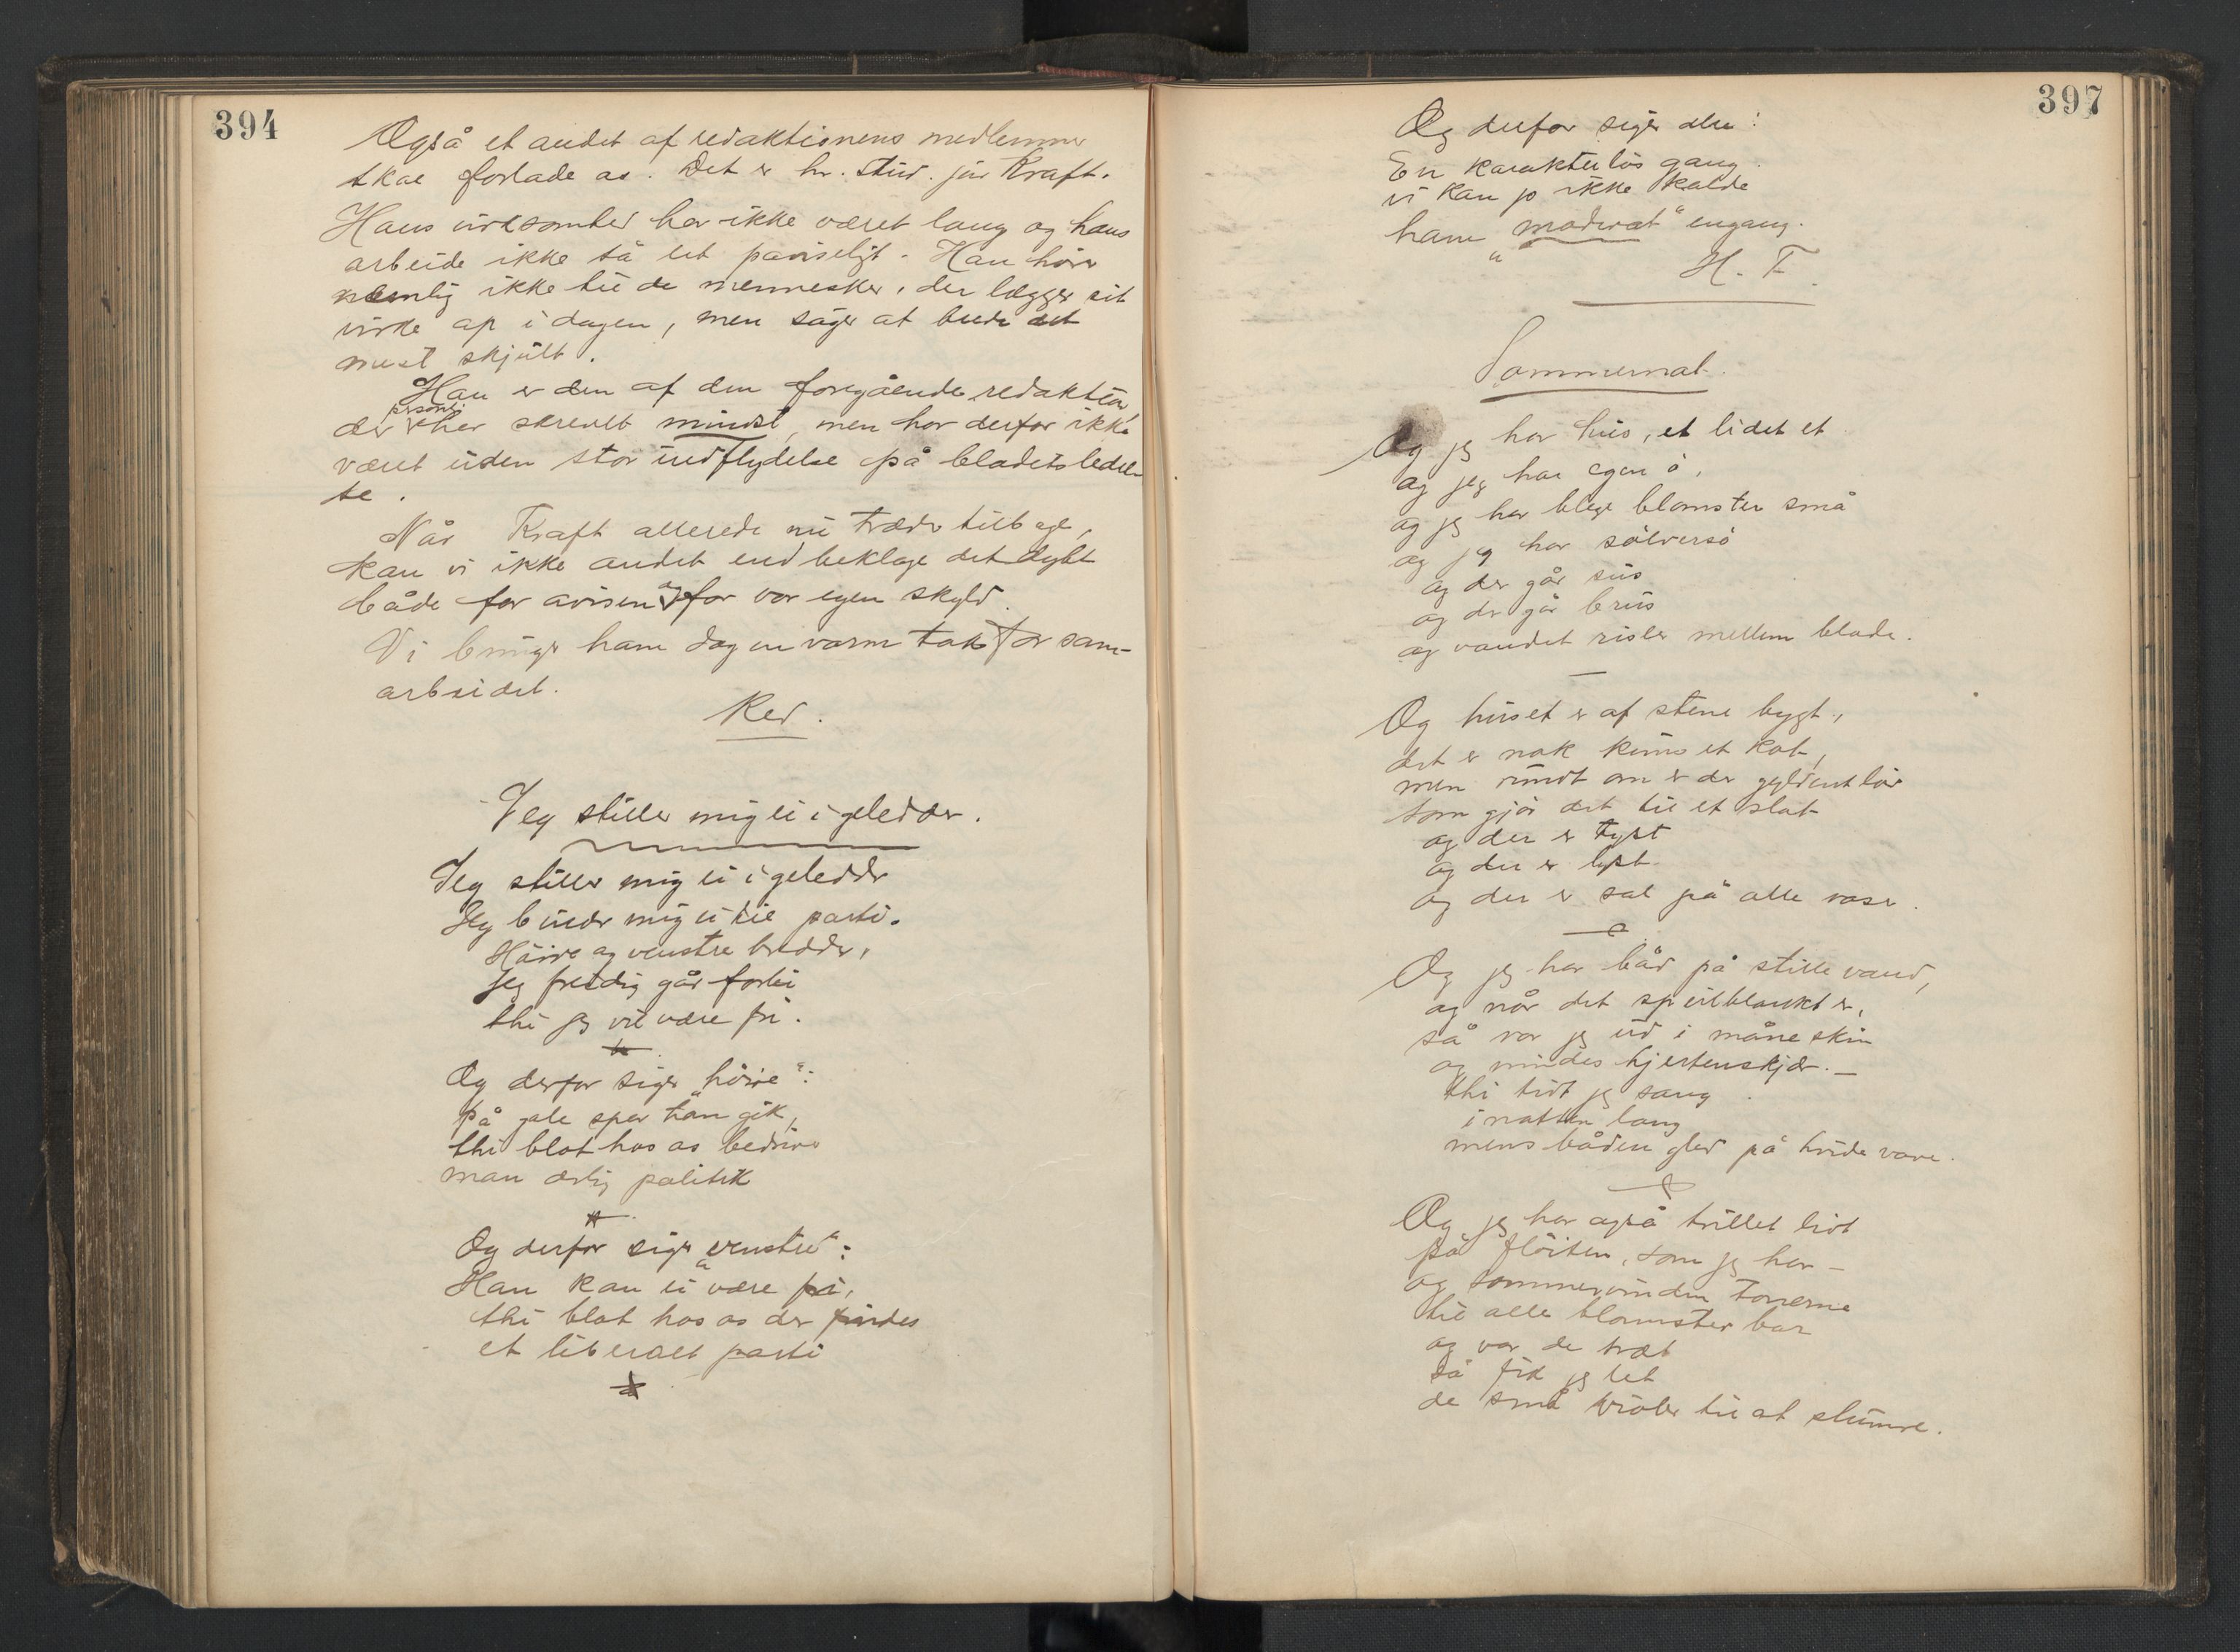 394
Også et andet af redaktionens medlemmer
skal forlade os. Det er hr. stud. jur Kraft.
Hans virksomhed har ikke været lang og hans
arbeide ikke så let påviseligt. Han hører
nemlig ikke til de mennesker, der lægger sit
virke op i dagen, men søger at brude det
mest skjult.
Han er den af den foregående redaktion,
der personl. har skrevet mindst, men har derfor ikke
været uden stor indflydelse på bladets ledel-
se.
Når Kraft allerede nu træder tilbage,
kan vi ikke andet end beklage det dybt
både for avisen og for vor egen skyld.
Vi bringer ham dog en varm tak for sam-
arbeidet.
Red.
Jeg stiller mig ei i geledder.
Jeg stiller mig ei i geledder
Jeg binder mig ei til parti.
Höire og venstre bredder,
jeg freidig går forbi
thi jeg vil være fri.
Og derfor siger "höire":
På gale spor han gik,
thi blot hos os bedrives
man ærlig politik
Og derfor siger "venstre":
Han kan ei være fri,
thi blot hos os der findes
et liberalt parti
397
Og derfor siger alle:
En karakterlös gang.
vi kan jo ikke kalde
ham "moderat" engang.
H. F.
Sommernat.
Og jeg har hus, et lidet et
og jeg har egen ö,
og jeg har blege blomster små
og jeg har sölversö
og der går sus
og der går brus
og vandet risler mellem blade.
Og huset er af stene bygt,
det er nok kuns et kot,
men rundt om er der gyldent löv
som gjör det til et slot
og der er tyst
og der er lyst
og der er sal på alle vase.
Og jeg har båd på stille vand,
og når det speilblankt er,
så ror jeg ud i måneskin
og mindes hjertenskjær. —
thi tidt jeg sang
i natten lang
mens båden gled på hvide vove.
Og jeg har også trillet lidt
på flöiten, som jeg har —
og sommervinden tonerne
til alle blomster bar
og var de træt
så fik jeg let
de små violer til at slumre.